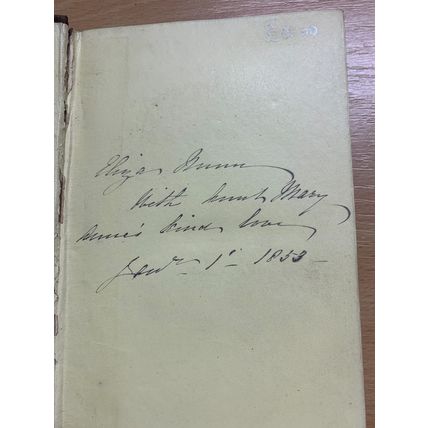 Eliza Nunn
With Aunt Mary
Anne's kind love
Jany 1st 1853